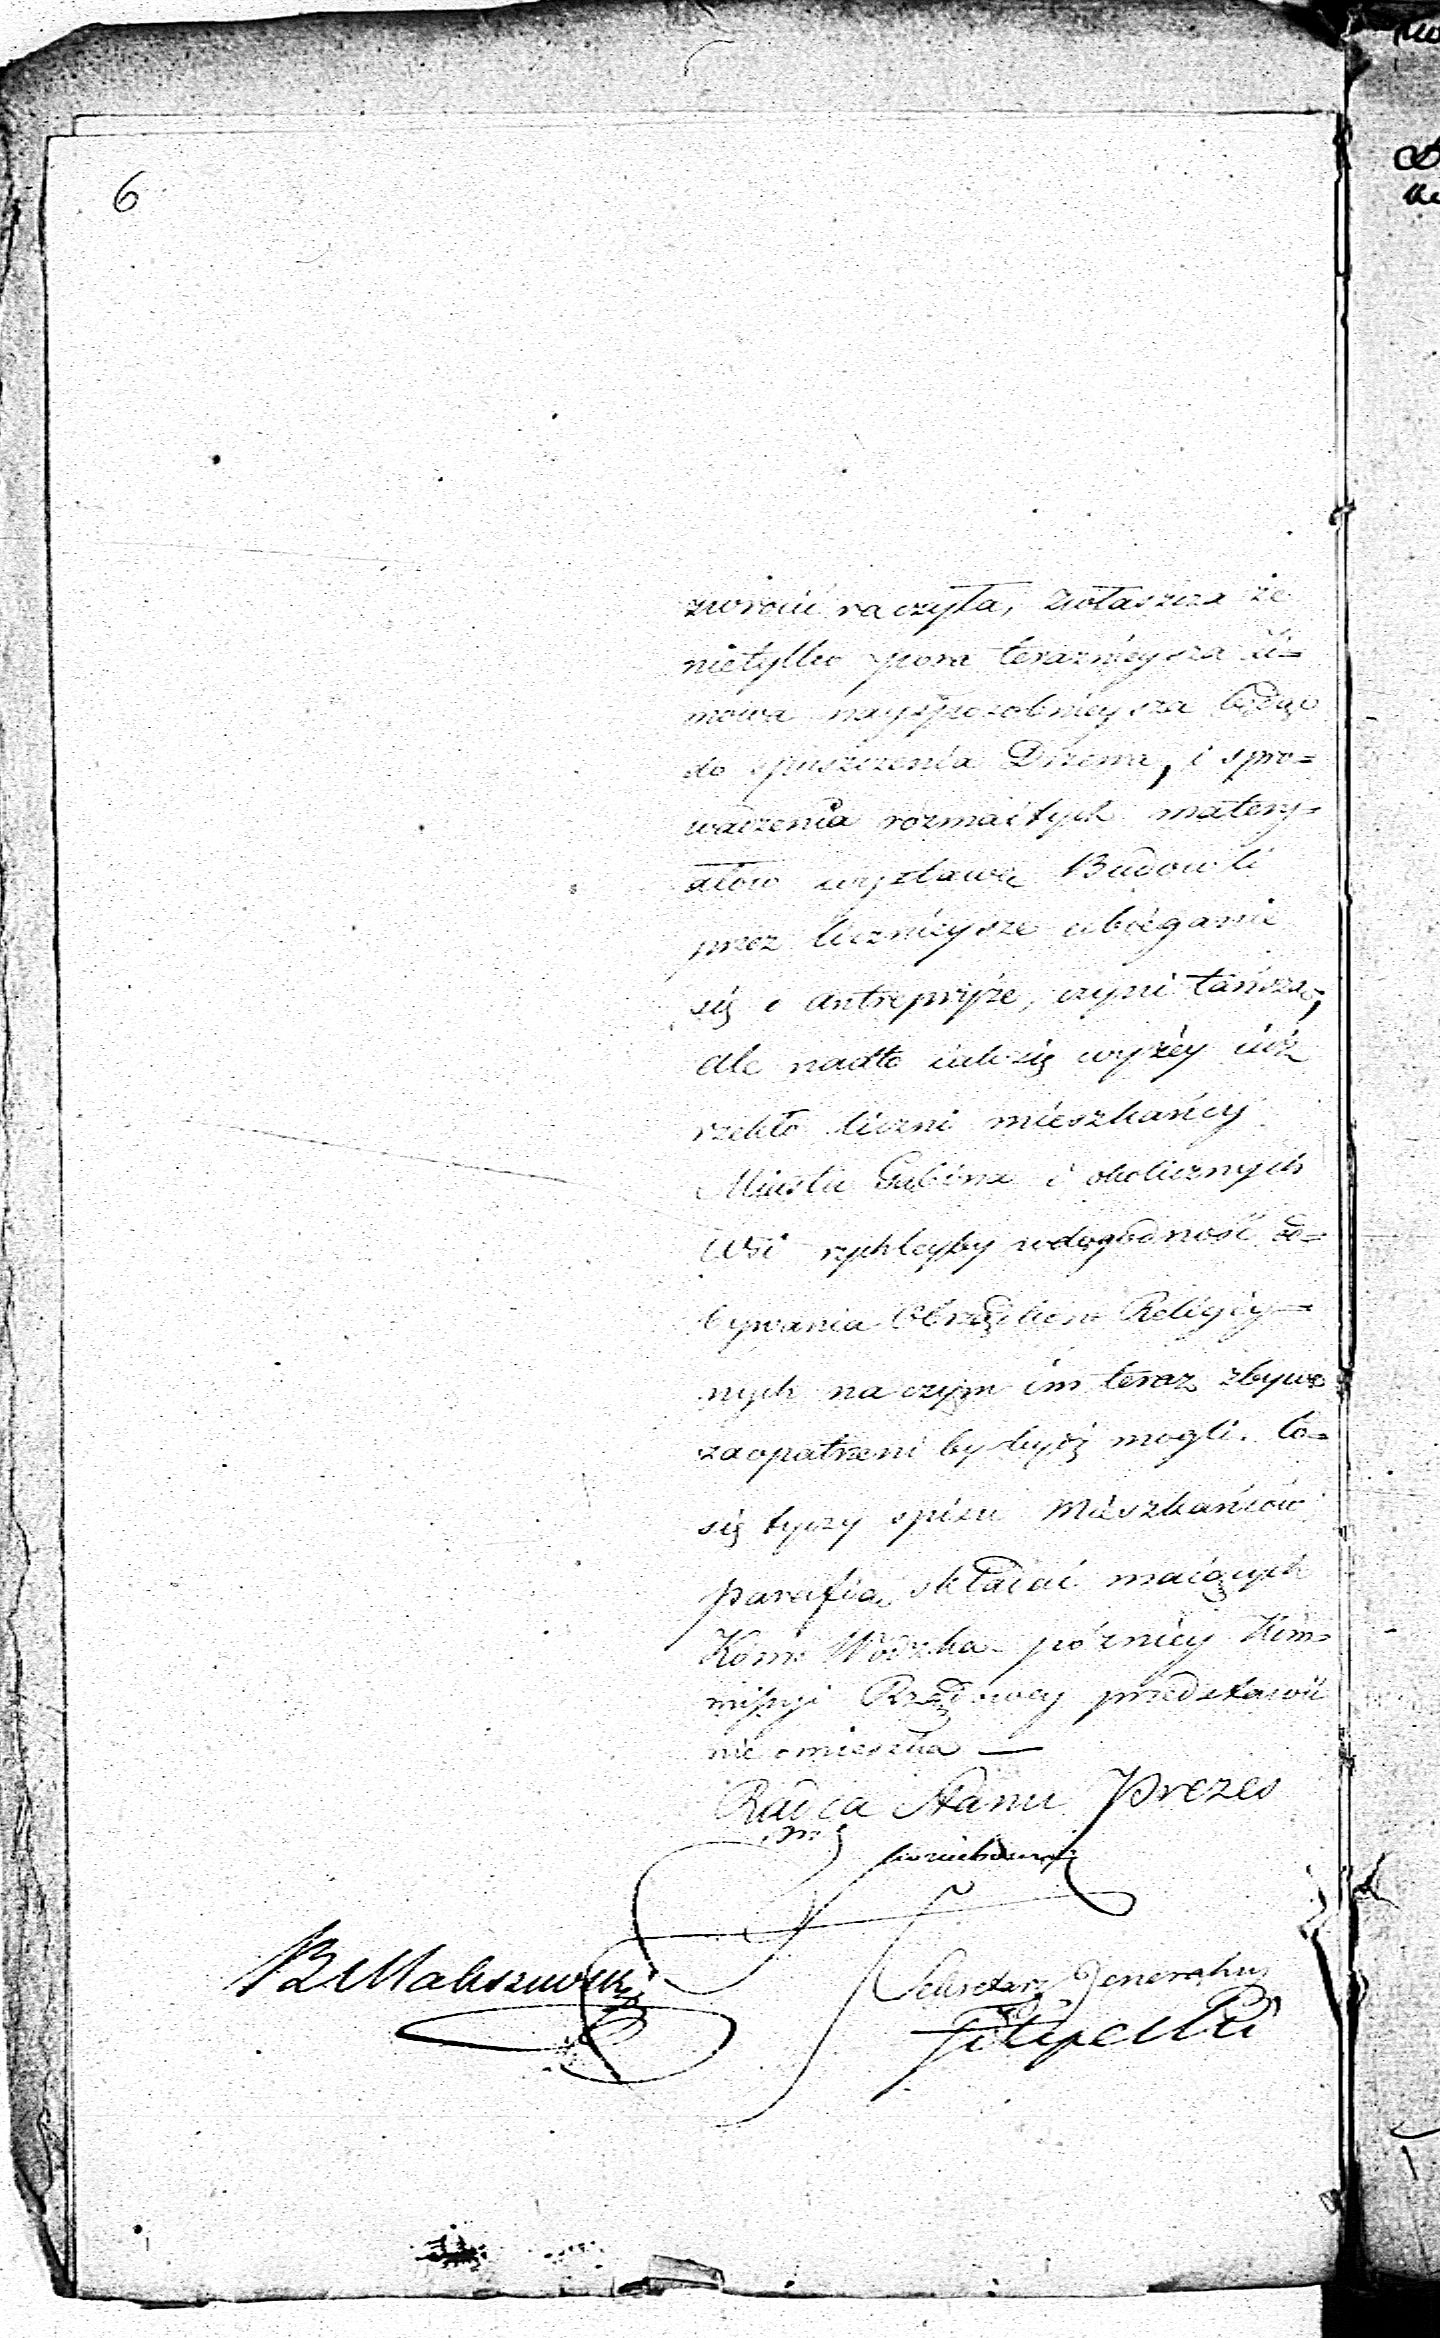 6
zwrócić raczyła, zwłaszcza że
nietylko pora teraznieysza zi=
mowa naysposobnieysza będąc
do spuszczenia Drzewa, i spro=
wadzenia rozmaitych matery=
ałów wystawę Budowli
przez licznieysze ubieganie
się o antrepryże, czyni tańszą,
ale nadto iak się wyżéy iuż
rzekło liczni mieszkańcy
Miasta Gąbina i okolicznych
Wsi rychleyby w dogodność od=
bywania Obrządków Religiy=
nych na czym im teraz zbywa
zaopatrzeni by bydź mogli. Co=
się tyczy spisu Mieszkańców
parafią składać maiących
Kom: Wodzka póżniéy Kom=
missyi Rządowéy przedstawić
nie omieszka —
Radca Stanu Prezes
Sekretarz Jeneralny
Filipecki
BMaliszewski